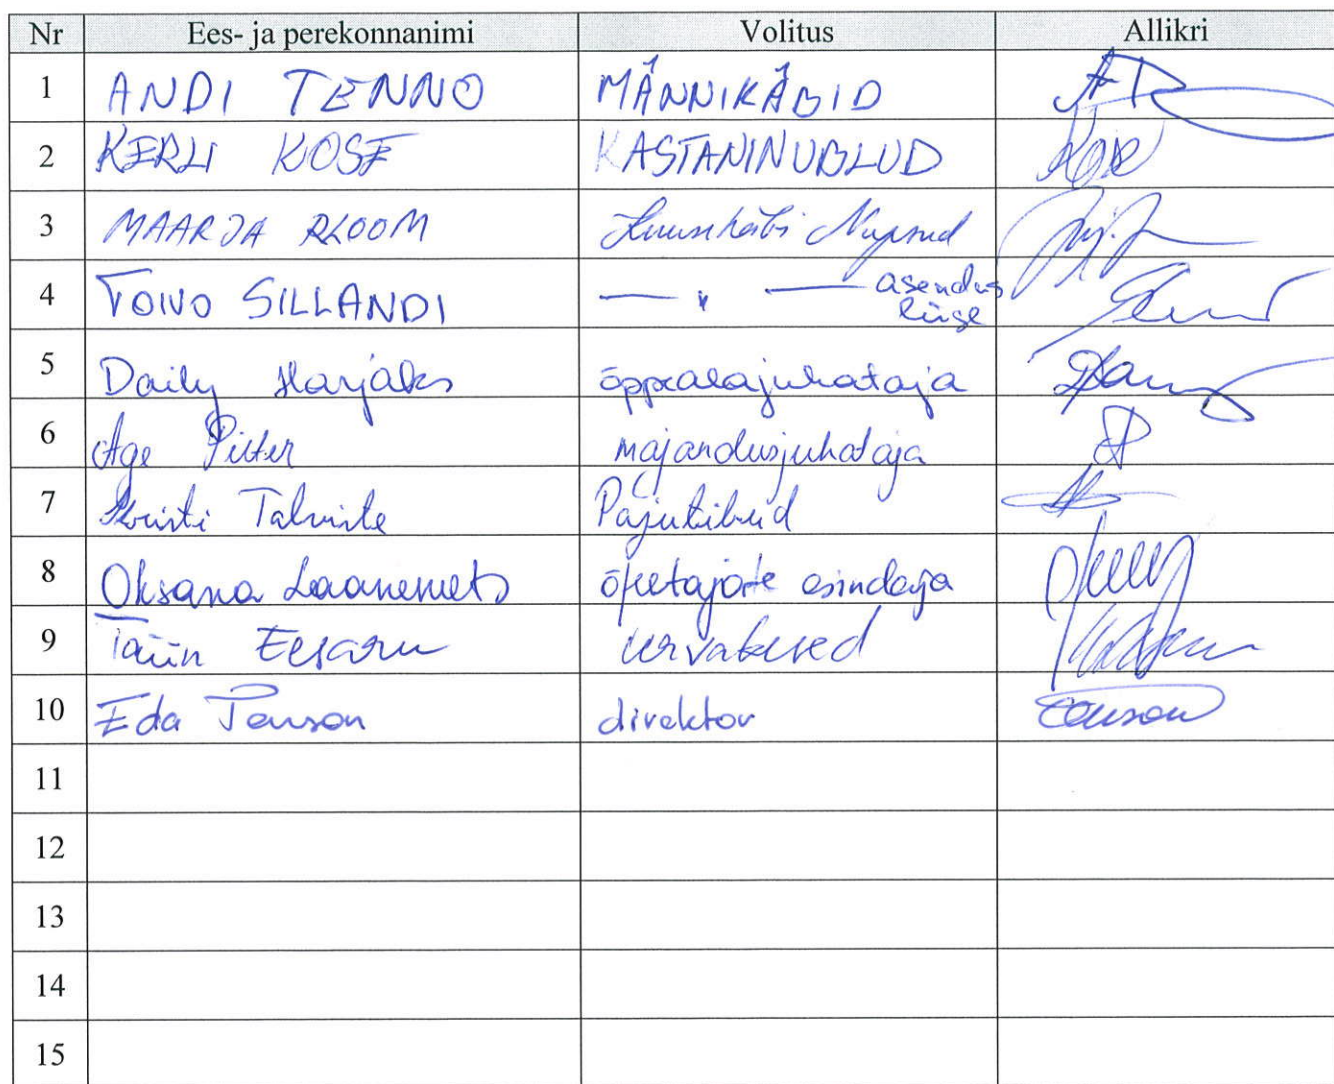 Nr Ees- ja perekonnanimi Volitus Allikri
1 ANDI TENNO MÄNNIKÄBID
2 KERLI KOSE KASTANINUBLUD
3 MAARJA PLOOM Kuusekäbi Nupsud
4 TOIVO SILLANDI — " — asendus
liige
5 Daily Harjaks õppealajuhataja
6 Age Pitter majandusjuhataja
7 Kristi Talviste Pajutibud
8 Oksana Laanemets õpetajate esindaja
9 Eesaru urvakesed
10 Eda direktor
11
12
13
14
15